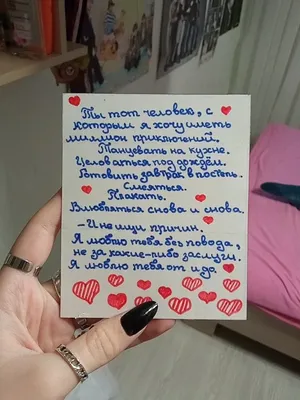 Ты тот человек, с
которым я хочу иметь
миллион приключений.
Танцевать на кухне.
Целоваться под дождём.
Готовить завтрак в постель.
Смеяться.
Плакать.
Влюбляться снова и снова.
-И не ищи причин.
Я люблю тебя без повода,
не за какие-либо заслуги.
Я люблю тебя от и до.